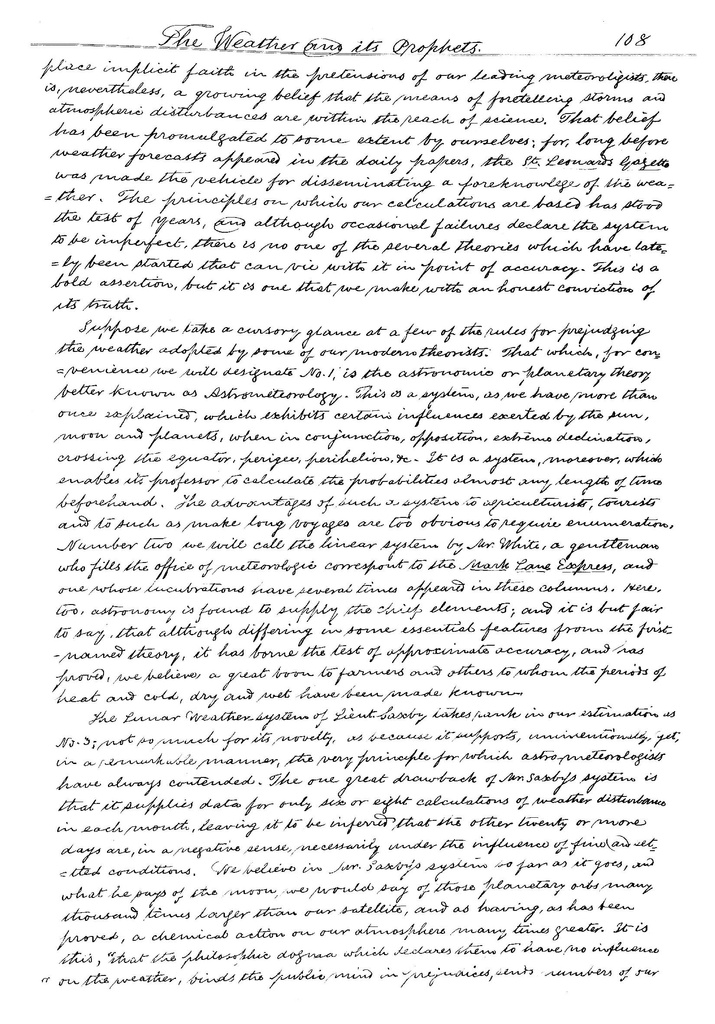 The Weather and its Prophets. 108
place implicit faith in the pretensions of our leading meteoroligists, there
is, nevertheless, a growing belief that the means of foretelling storms and
atmospheric disturbances are within the reach of science. That belief
has been promulgated to some extent by ourselves; for, long before
weather forecasts appeared in the daily papers, the St. Leonards Gazette
was made the vehicle for disseminating a foreknowlege of the wea=
=ther. The principles on which our calculations are based has stood
the test of years, and although occasional failures declare the system
to be imperfect, there is no one of the several theories which have late=
=ly been started that can vie with it in point of accuracy. This is a
bold assertion, but it is one that we make with an honest conviction of
its truth.
Suppose we take a cursory glance at a few of the rules for prejudging
the weather adopted by some of our modern theorists. That which, for con
=venience we will designate No. 1, is the astronomic or planetary theory
better known as Astrometeorology. This is a system, as we have more than
once explained, which exhibits certain influences exerted by the sun,
moon and planets, when in conjunction, opposition, extreme declination,
crossing the equator, perigee, perihelion, &c. It is a system, moreover, which
enables its professor to calculate the probabilities almost any length of time
beforehand. The advantages of such a system to agriculturists, tourists
and to such as make long voyages are too obvious to require enumeration.
Number two we will call the linear system by Mr. White, a gentleman
who fills the office of meteorologic correspont to the Mark Lane Express, and
one whose lucubrations have several times appeared in these columns. Here,
too, astronomy is found to supply the chief elements; and it is but fair
to say, that although differing in some essential features from the first
-named theory, it has borne the test of approximate accuracy, and has
proved, we believe, a great boon to farmers and others to whom the periods of
heat and cold, dry and wet have been made known.
The Lunar Weather system of Lieut. Saxby takes rank in our estimation as
No. 3; not so much for its novelty, as because it supports, unintentionally, yet,
in a remarkable manner, the very principle for which astro-meteorologists
have always contended. The one great drawback of Mr. Saxby's system is
that it supplies data for only six or eight calculations of weather disturbance
in each month, leaving it to be inferred that the other twenty or more
days are, in a negative sense, necessarily under the influence of fine and set-
=tled conditions. We believe in Mr. Saxby's system so far as it goes, and
what he says of the moon, we would say of those planetary orbs many
thousand times larger than our satellite, and as having, as has been
proved, a chemical action on our atmosphere many times greater. It is
this, "that the philosophic dogma which declares them to have no influence
on the weather, binds the public mind in prejudices, sends numbers of our